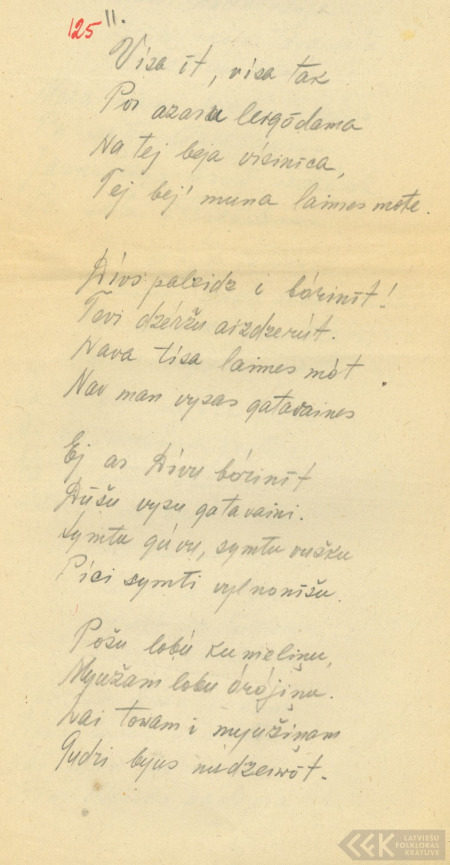 125
11.
Visa īt, visa tak
Por azaru leigōdama
Na tej beja visinica,
Tej bej' muna laimes mōte.
Dīvs paleidz i bōrinīt!
Tevi dzēržu aizdzerūt.
Nava tīsa laimes mōt
Nav man vysas gatavaines
Ej ar Dīvu bōrinīt
Dūšu vysu gatavaini.
Symtu gūvu, symtu vušku
Pīci symti vylnonīšu.
Pošu lobū kumeliņu,
Myužam lobu ōrōjiņu.
Lai tovam i myužiņam
Gudri byus nudzeiwōt.
LATVIEŠU
FOLKLORAS
KRĀTUVE